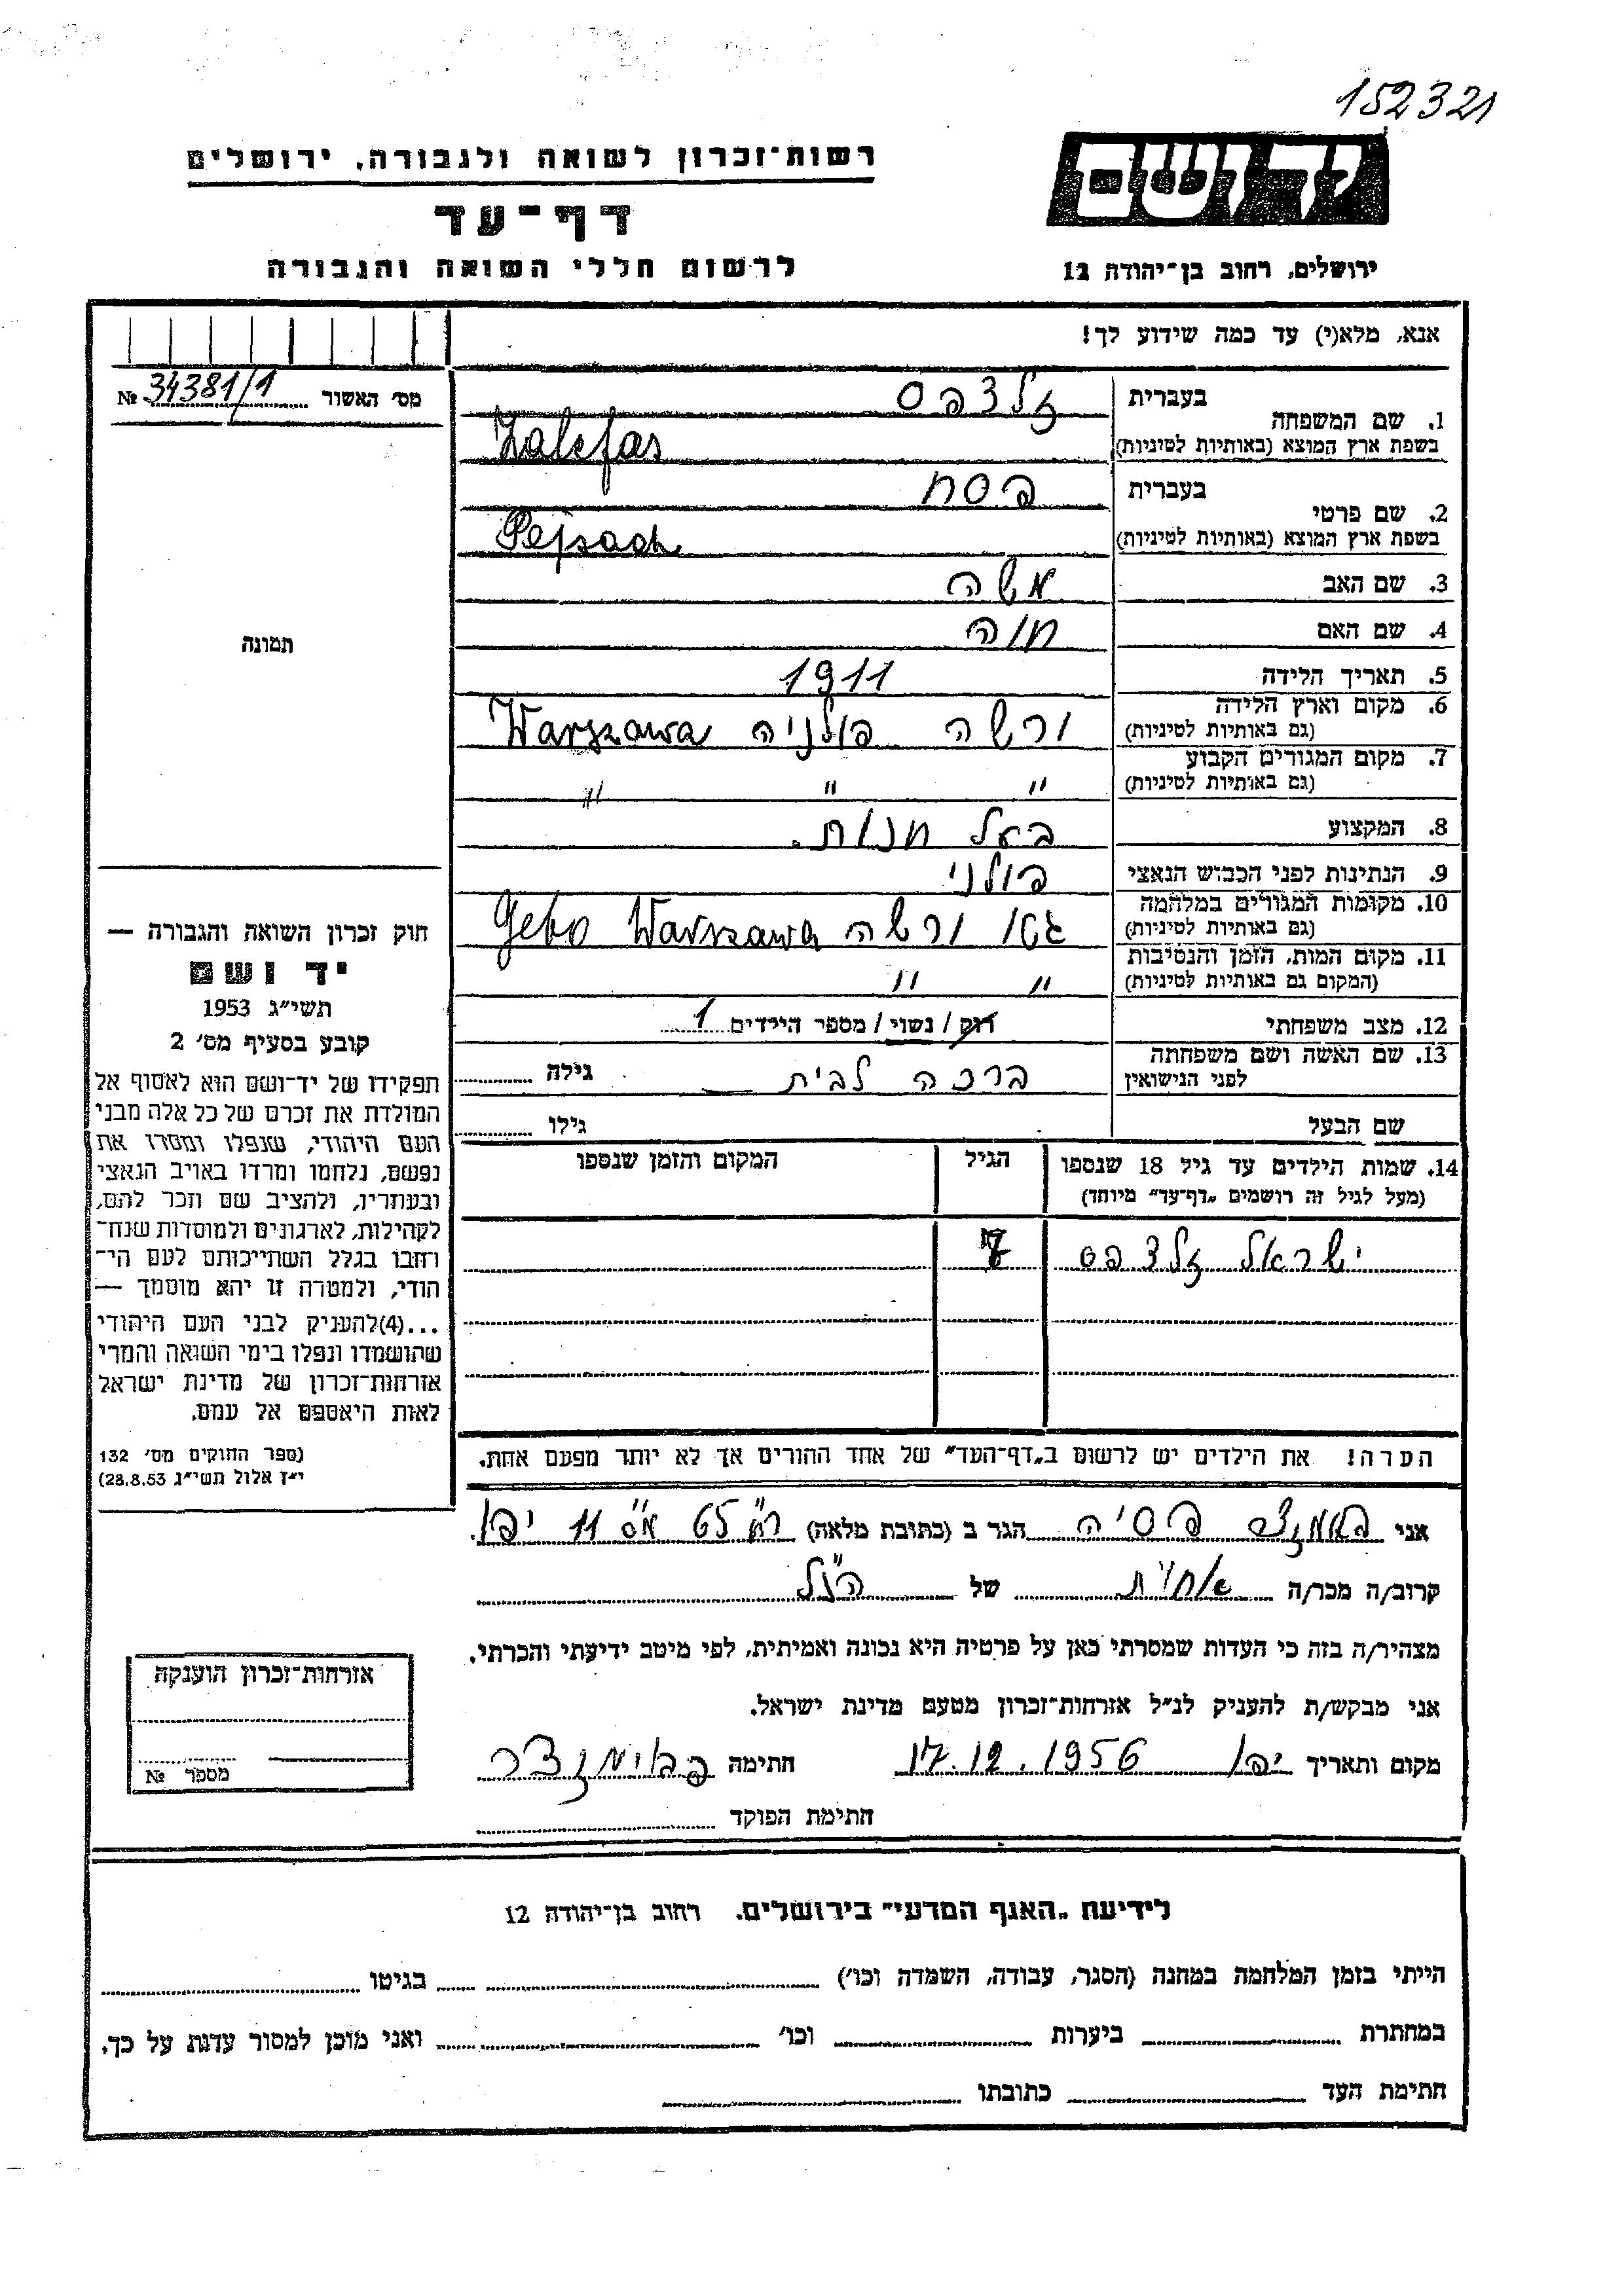 152321
יד ושם
רשות־זכרון לשואה ולגבורה, ירושלים
דף־עד
לרשום חללי השואה והגבורה
ירושלים, רחוב בן־יהודה 12
אנא, מלא(י) עד כמה שידוע לך!
מס׳ האשור 34381/1 №
תמונה
חוק זכרון השואה והגבורה —
יד ושם
תשי״ג 1953
קובע בסעיף מס׳ 2
תפקידו של יד־ושם הוא לאסוף אל
המולדת את זכרם של כל אלה מבני
העם היהודי, שנפלו ומסרו את
נפשם, נלחמו ומרדו באויב הנאצי
ובעוזריו, ולהציב שם וזכר להם,
לקהילות, לארגונים ולמוסדות שנח־
רחבו בגלל השתייכותם לעם הי־
הודי, ולמטרה זו יהא מוסמך —
...(4)להעניק לבני העם היהודי
שהושמדו ונפלו בימי השואה והמרי
אזרחות־זכרון של מדינת ישראל
לאות היאספם אל עמם.
(ספר החוקים מס׳ 132
י״ז אלול תשי״ג 28.8.53)
1. שם המשפחה
בעברית זלצפס
בשפת ארץ המוצא (באותיות לטיניות) Zalcfas
2. שם פרטי
בעברית פסח
בשפת ארץ המוצא (באותיות לטיניות) Pejsach
3. שם האב משה
4. שם האם חוה
5. תאריך הלידה 1911
6. מקום וארץ הלידה
(גם באותיות לטיניות) ורשה פולניה Warszawa
7. מקום המגורים הקבוע
(גם באותיות לטיניות) " " "
8. המקצוע בעל חנות.
9. הנתינות לפני הכבוש הנאצי פולני
10. מקומות המגורים במלחמה
(גם באותיות לטיניות) גטו ורשה Geto Warszawa
11. מקום המות, הזמן והנסיבות
(המקום גם באותיות לטיניות) " "
12. מצב משפחתי רוק / נשוי / מספר הילדים 1
13. שם האשה ושם משפחתה
לפני הנישואין ברכה לבית — גילה
שם הבעל גילו
14. שמות הילדים עד גיל 18 שנספו הגיל המקום והזמן שנספו
(מעל לגיל זה רושמים „דף־עד״ מיוחד)
ישראל זלצפס 7
הערה! את הילדים יש לרשום ב„דף־העד״ של אחד ההורים אך לא יותר מפעם אחת.
אני פסיה הגר ב (כתובת מלאה) רח" 65 מס" 11 יפו.
קרוב/ה מכר/ה אחות של הנ"ל
מצהיר/ה בזה כי העדות שמסרתי כאן על פרטיה היא נכונה ואמיתית, לפי מיטב ידיעתי והכרתי.
אני מבקש/ת להעניק לנ״ל אזרחות־זכרון מטעם מדינת ישראל.
מקום ותאריך יפו 17.12.1956 חתימה
חתימת הפוקד
אזרחות־זכרון הוענקה
מספר №
לידיעת „האגף המדעי״ בירושלים. רחוב בן־יהודה 12
הייתי בזמן המלחמה במחנה (הסגר, עבודה, השמדה וכו׳) בגיטו
במחתרת ביערות וכו׳ ואני מוכן למסור עדות על כך.
חתימת העד כתובתו